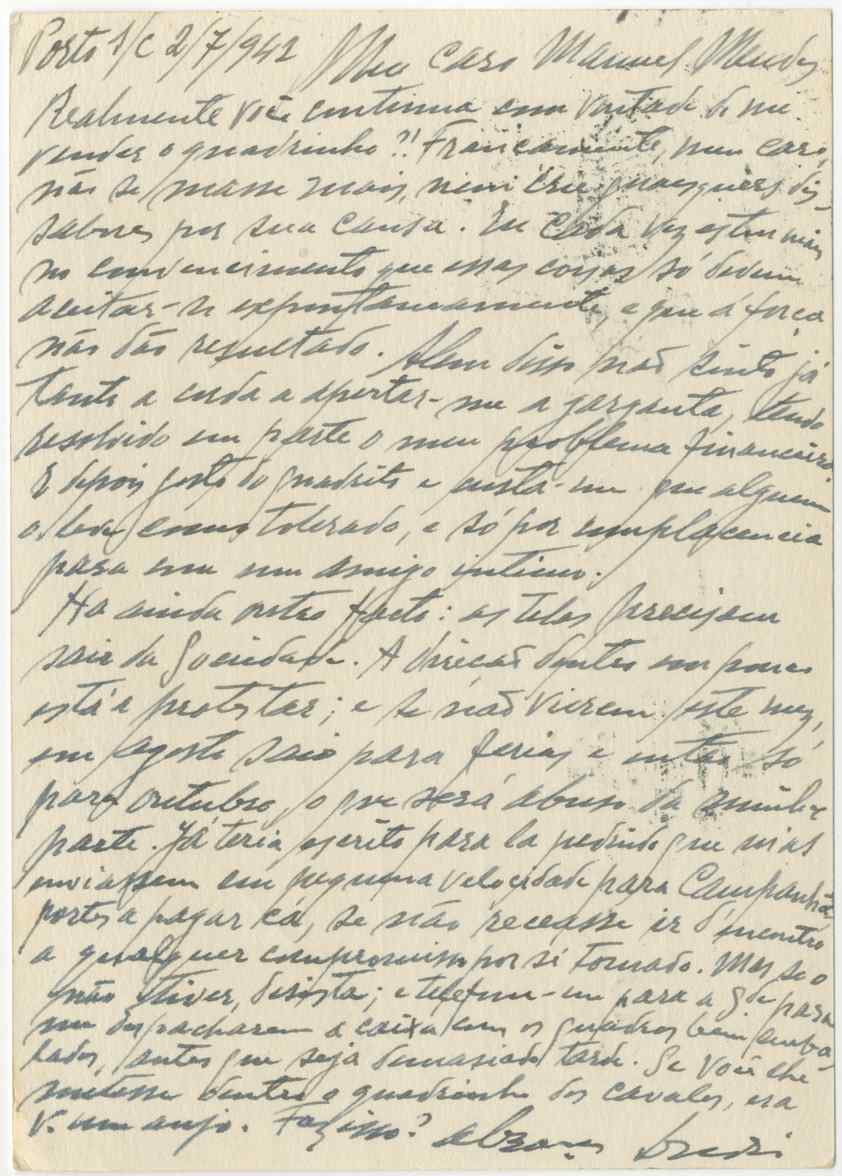 Porto s/c 2/7/942 Meu caro Manuel Mendes
Realmente você continua com vontade de me
vender o quadrinho?! Francamente, meu caro,
não se masse mais, nem crie quaesquers dis-
sabores por sua causa. Eu cada vez estou mais
no convencimento que essas coisas só devem
aceitar-se expontaneamente, e que á força
não dão resultado. Alem disso não sinto já
tanto a corda a apertar-me a garganta, tendo
resolvido em parte o meu problema financeiro.
E depois gosto do quadrito e custa-me que alguem
o leve como tolerado, e só por complacencia
para com um amigo intimo.
Ha ainda outro facto: as telas precisam
sair da Sociedade. A direcão dentro em pouco
está a protestar; e se não vierem este mez,
em agosto saio para ferias e então só
para outubro, o que será abuso da minha
parte. Já teria escrito para la pedindo que mas
enviassem em pequena velocidade para Campanhã,
portes a pagar cá, se não receasse ir d'encontro
a qualquer compromisso por si tomado. Mas se o
não tiver, desista; e telefone-me para a Sde para
me despacharem a caixa com os quadros bem emba-
lados, antes que seja demasiado tarde. Se você lhe
metesse dentro o quadrinho dos cavalos, era
V. um anjo. Faz isso? Abraços